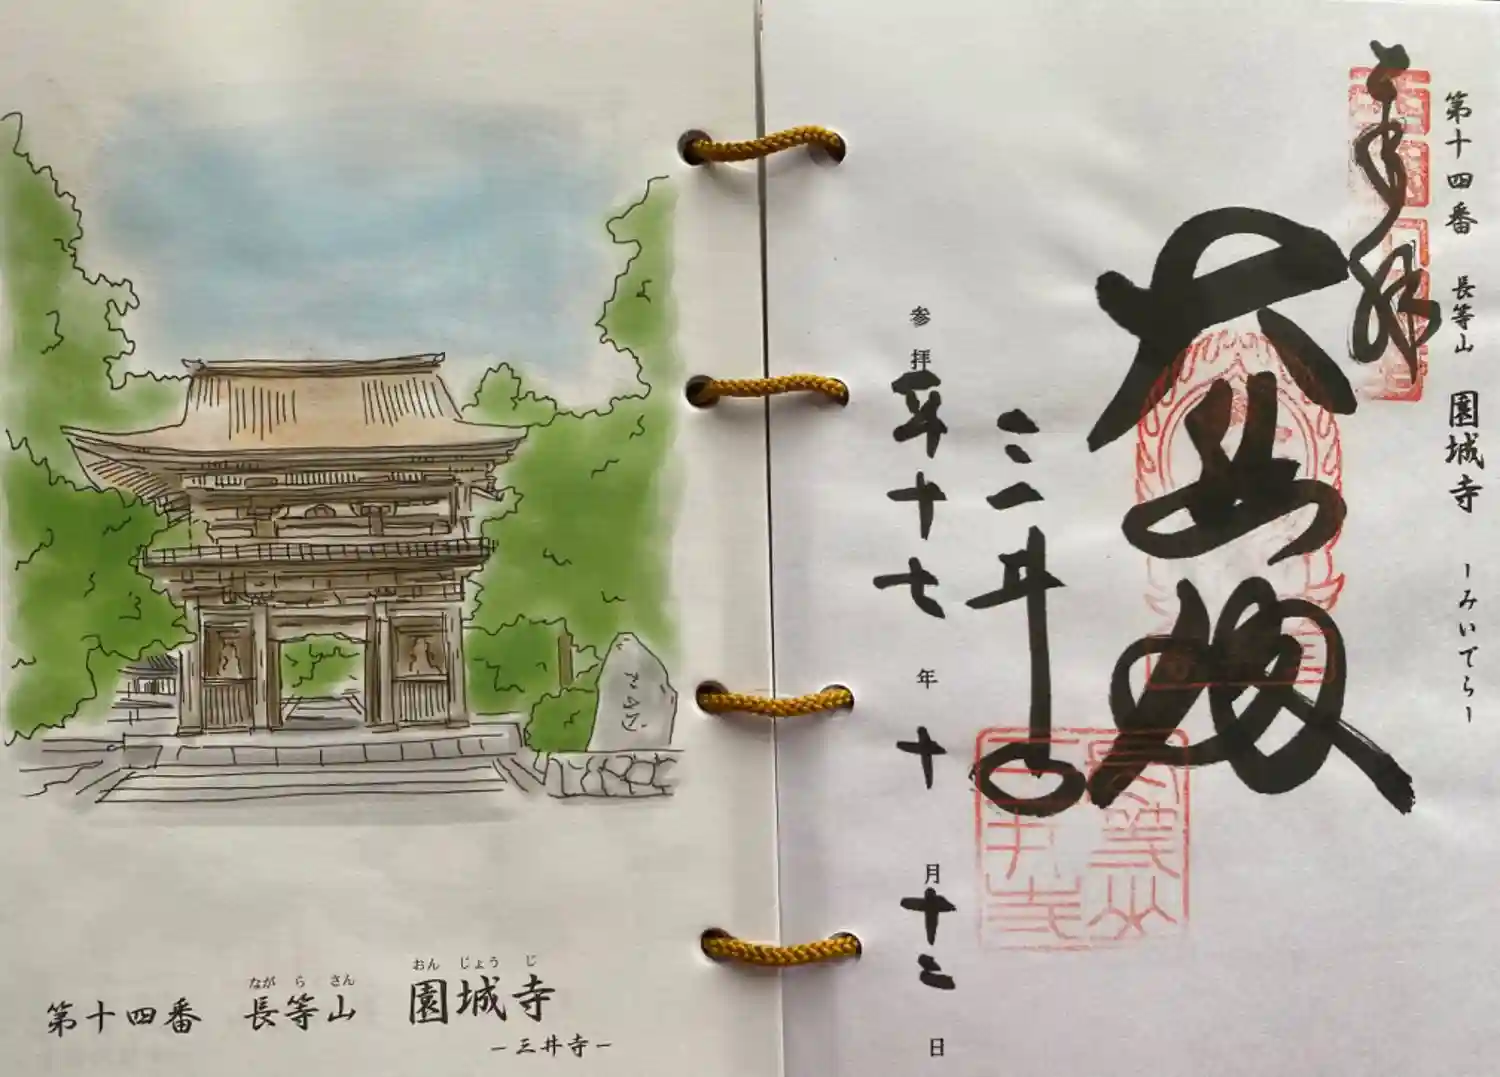 ながらさん おんじょうじ
第十四番 長等山 園城寺
－三井寺－
第十四番 長等山 園城寺 －みいでら－
奉拝
大悲殿
三井寺
参拝 十七年十月十二日
長等山
三井寺